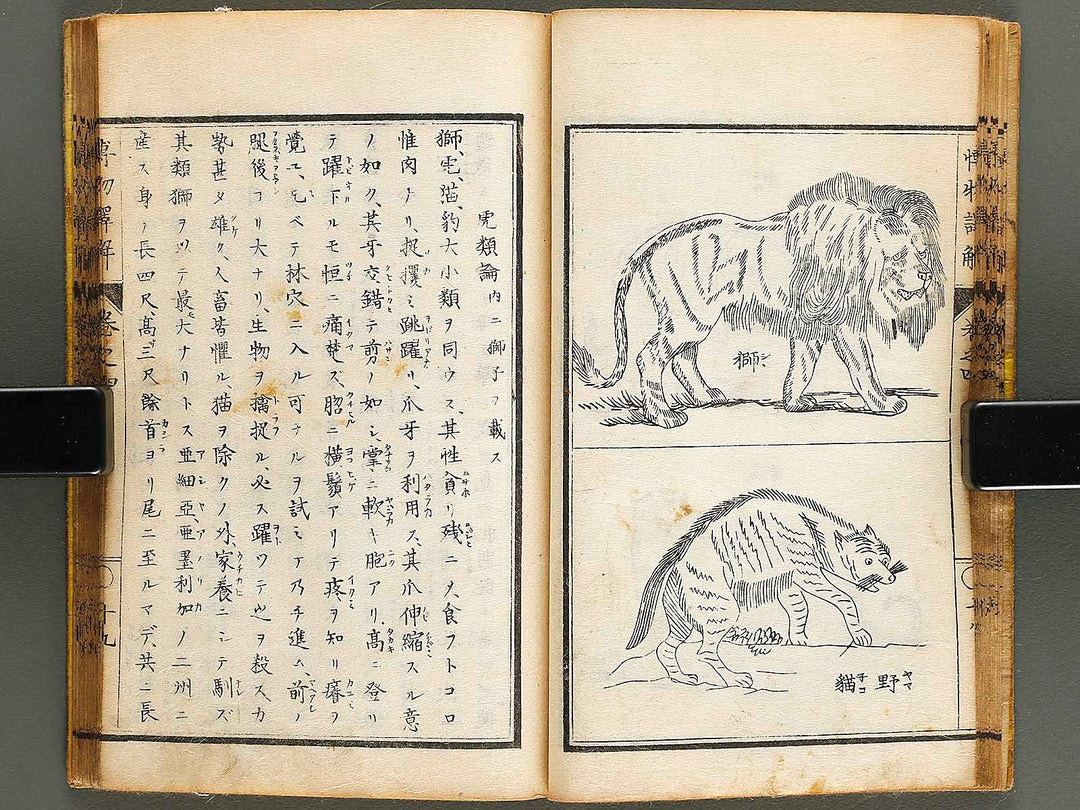 獅シ
野ヤマ猫ネコ
虎類論内ニ獅子ヲ載ス
獅、虎、猫、豹大小類ヲ同ウス、其性貪リ残ニメ食フトコロ
惟肉ナリ、捉攫ミ跳躍リ、爪牙ヲ利用ス、其爪伸縮スル意
ノ如ク、其牙交錯テ剪ノ如シ掌ニ軟キ胞アリ、高ニ登リ
テ躍下ルモ恒ニ痛楚ズ、脗ニ横鬚アリテ疼ヲ知リ癢ヲ
覚エ、凡ベテ林穴ニ入ル可ナルヲ試ミテ乃チ進ム、前ノ
腿後ヨリ大ナリ、生物ヲ擒捉ル、必ス躍ツテ之ヲ殺ス、力
勢甚タ雄ク、人畜皆懼ル、猫ヲ除クノ外、家養ニシテ馴ズ
其類獅ヲ以テ最大ナリトス亜細亜、亜墨利加ノ二州ニ
産ス身ノ長四尺、高サ三尺餘首ヨリ尾ニ至ルマデ、共ニ長
博物譯解 巻之四
十九